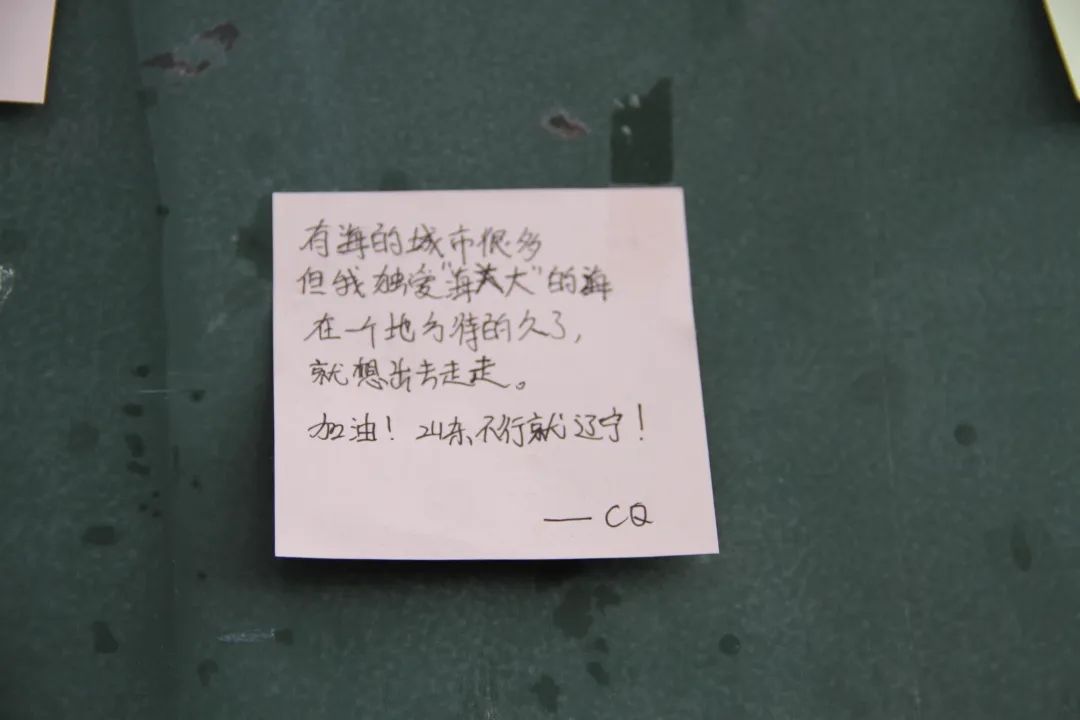 有海的城市很多
但我独爱"海大"的海
在一个地方待的久了,
就想出去走走。
加油! 山东不行就辽宁!
—— CQ